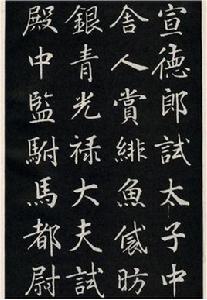 宣德郎試太子中
舍人賞緋魚袋昉
銀青光祿大夫試
殿中監駙馬都尉